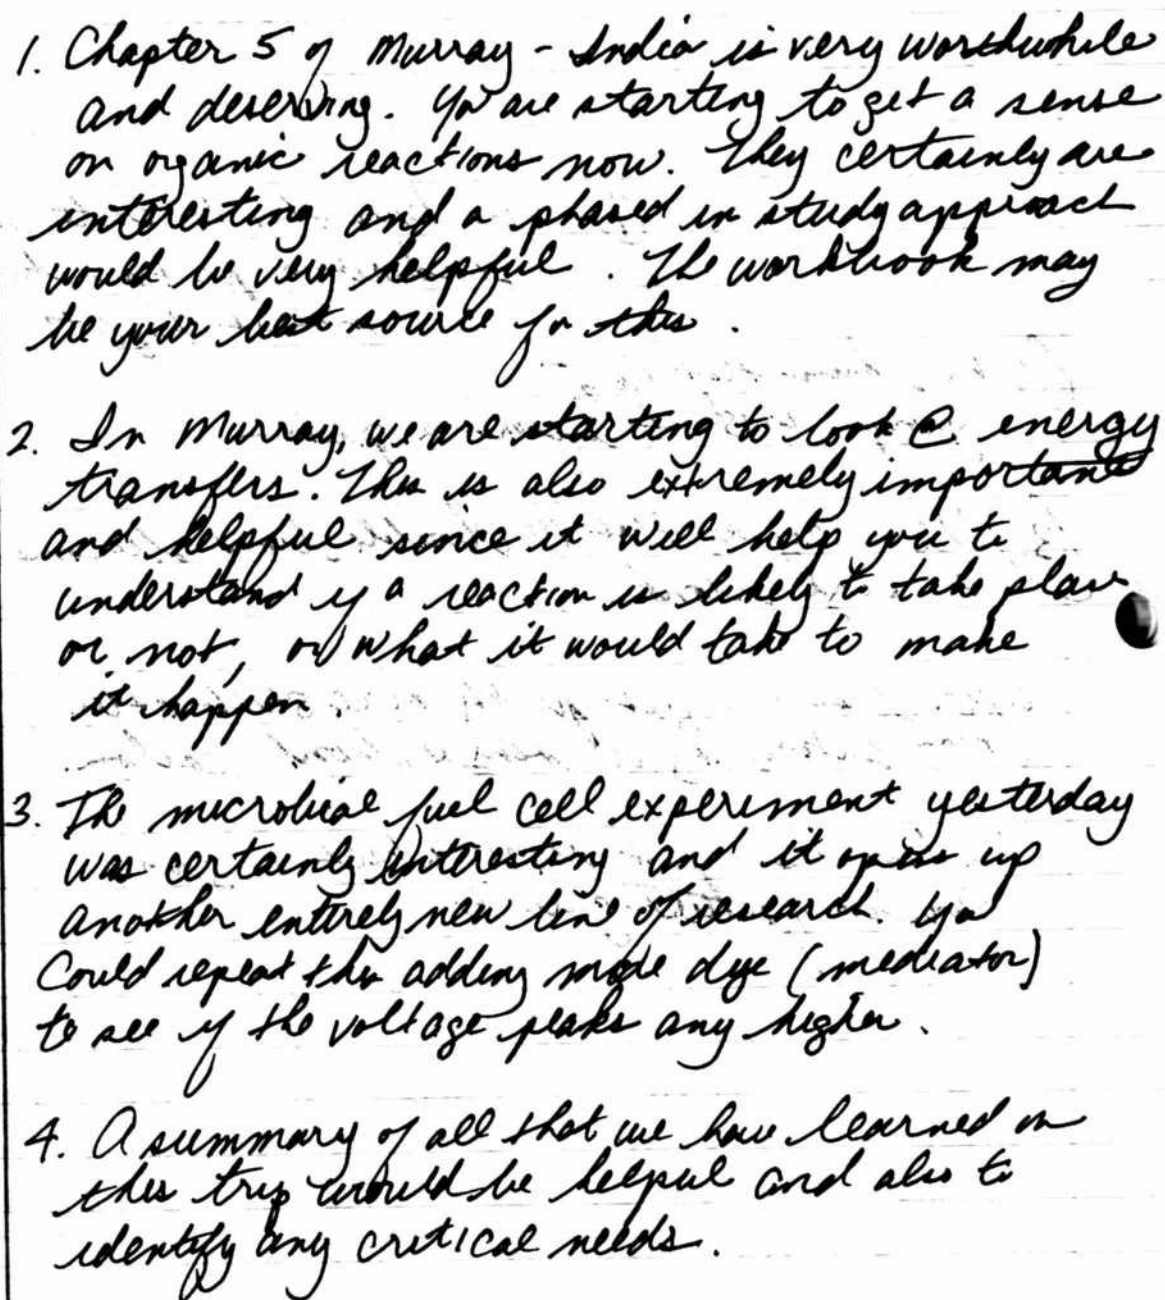 1. Chapter 5 of Murray - India is very worthwhile
and deserving. You are starting to get a sense
on organic reactions now. They certainly are
interesting and a phased in study approach
would be very helpful. The workbook may
be your best source for this.
2. In Murray, we are starting to look @ energy
transfers. This is also extremely important
and helpful since it will help you to
understand if a reaction is likely to take place
or not, or what it would take to make
it happen.
3. The microbical fuel cell experiment yesterday
was certainly interesting and it opens up
another entirely new line of research. You
Could repeat this adding more dye (mediator)
to see if the voltage peaks any higher.
4. A summary of all that we have learned on
this trip would be helpful and also to
identify any critical needs.